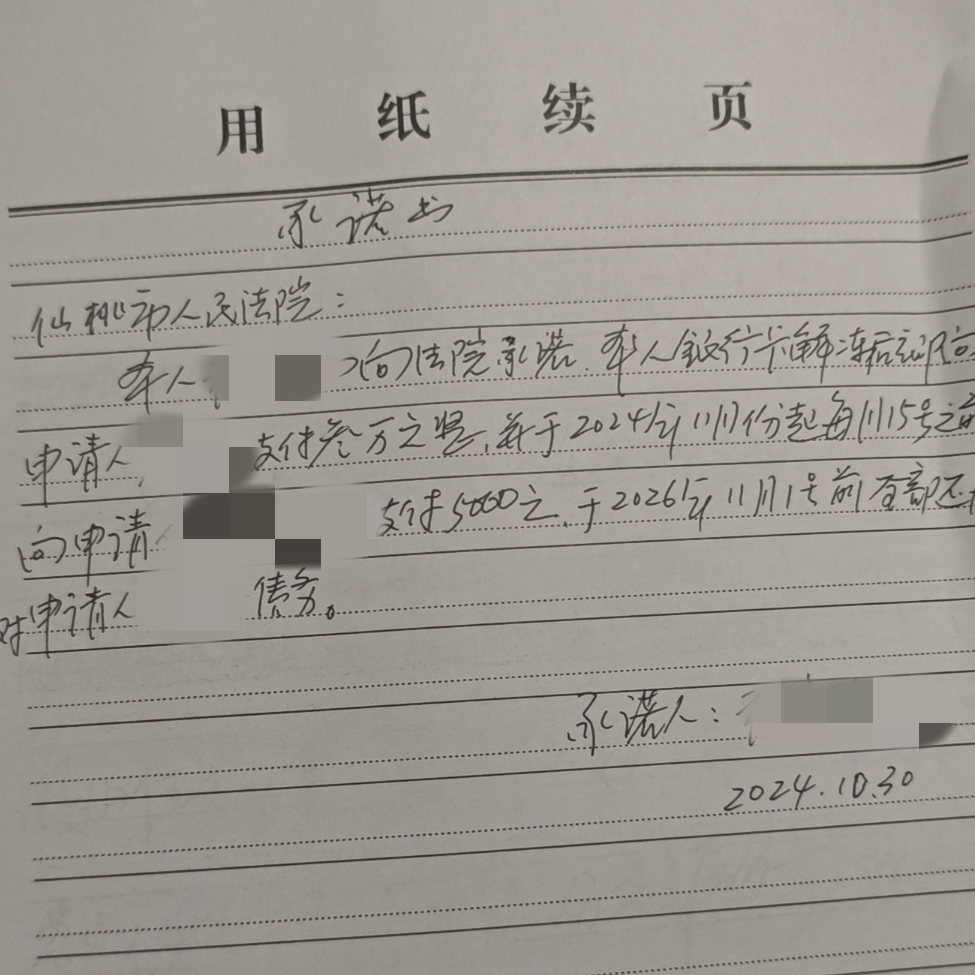 用纸续页
承诺书
仙桃市人民法院：
本人 向法院承诺，本人银行卡解冻后立即向
申请人 支付叁万元整，并于2024年11月份起每月15号之前
向申请 支付5000元，于2026年11月1号前全部还
对申请人 债务。
承诺人：
2024.10.30